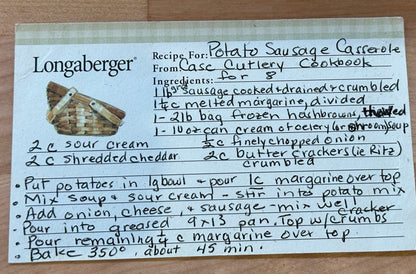 Longaberger®
Recipe For: Potato Sausage Casserole
From: Case Cutlery Cookbook
Ingredients: for 8
1 lb grd sausage cooked & drained & crumbled
1¼ c melted margarine, divided
1- 2 lb bag frozen hashbrowns, thawed
1- 10 oz can cream of celery (or shroom) soup
2 c sour cream ½ c finely chopped onion
2 c shredded cheddar 2c butter crackers (ie Ritz)
crumbled
• Put potatoes in lg bowl & pour 1c margarine over top
• Mix soup & sour cream - stir into potato mix
• Add onion, cheese, & sausage - mix well
• Pour into greased 9x13 pan. Top w/ cracker crumbs
• Pour remaining ¼ c margarine over top
• Bake 350° about 45 min.